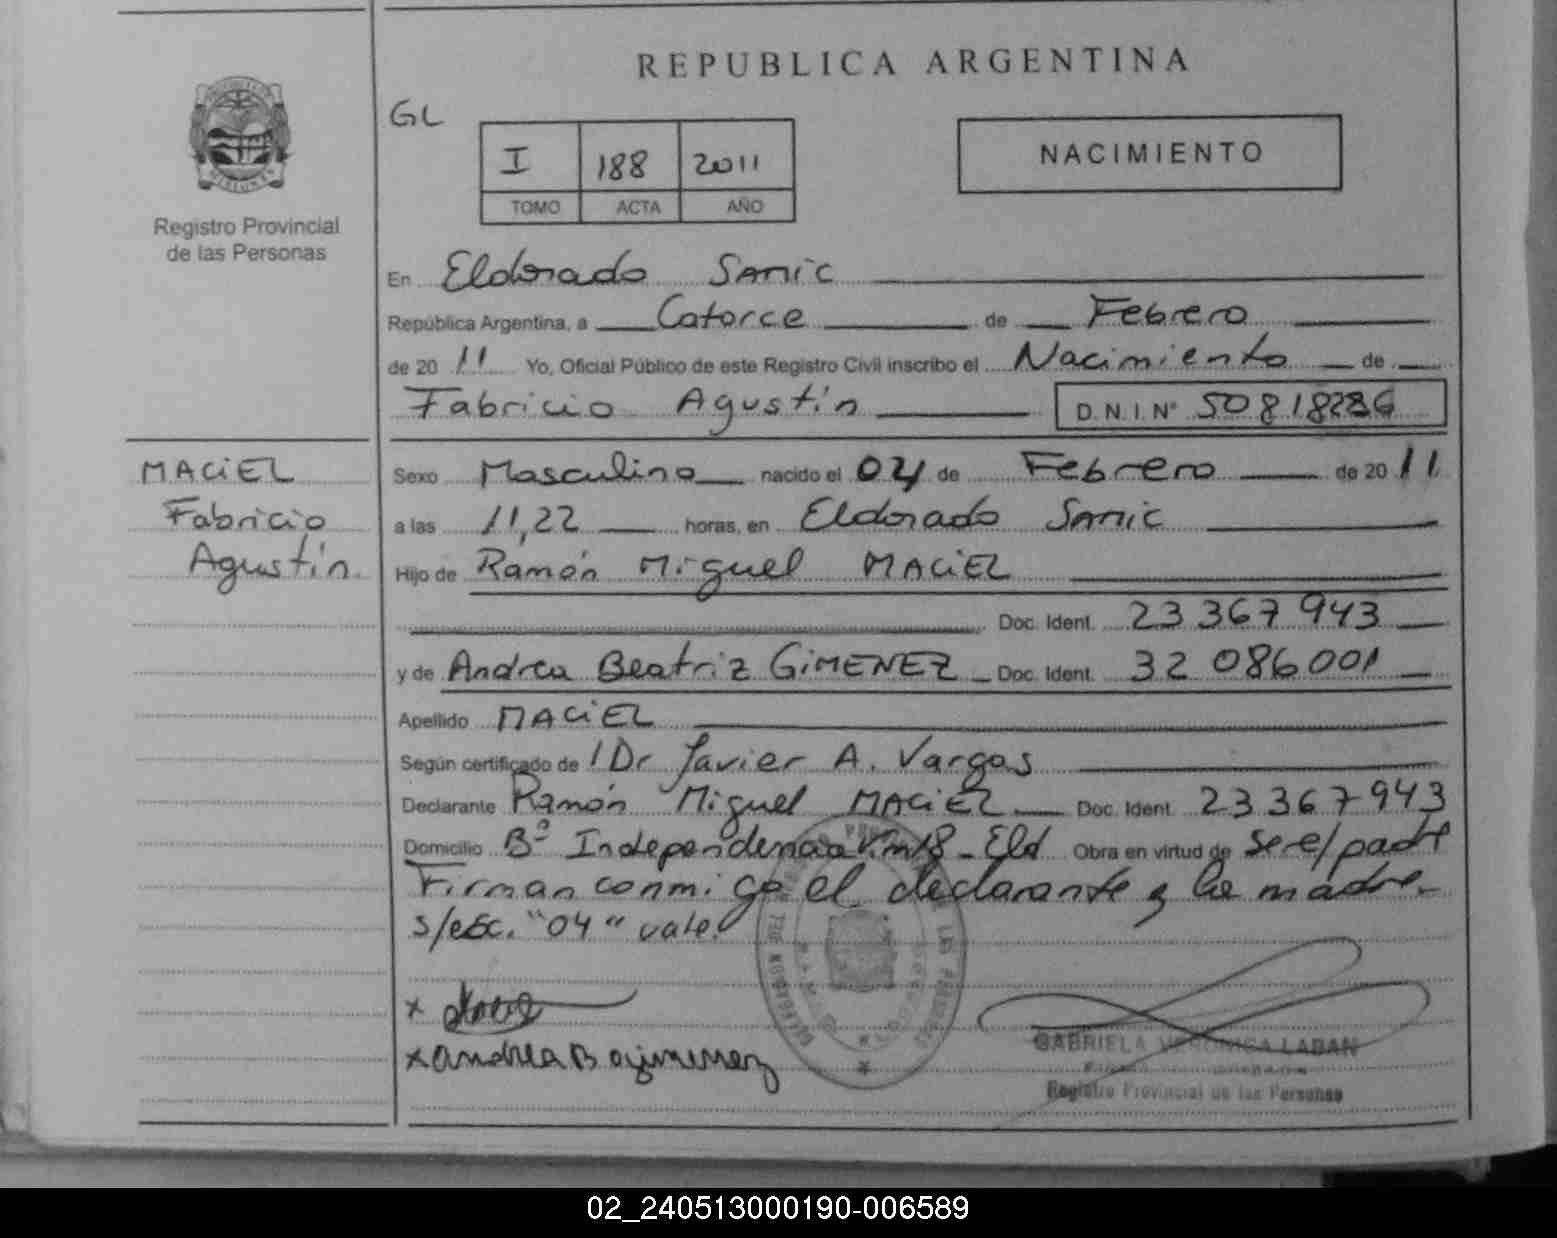 REPUBLICA ARGENTINA
GL
I 188 2011
TOMO ACTA AÑO
NACIMIENTO
Registro Provincial
de las Personas
En Eldorado SAMIC
República Argentina, a Catorce de Febrero
de 20 11 Yo, Oficial Público de este Registro Civil inscribo el Nacimiento de
Fabricio Agustín D.N.I. N° 50818236
MACiEL
Fabricio
Agustín
Sexo Masculino nacido el 04 de Febrero de 20 11
a las 11,22 horas, en Eldorado SAMIC
Hijo de Ramón Miguel MACiEL
Doc. Ident. 23 367 943
y de Andrea Beatriz GiMENEZ Doc. Ident. 32 086001
Apellido MACiEL
Según certificado de / Dr Javier A. Vargas
Declarante Ramón Miguel MACiEL Doc. Ident. 23 367943
Domicilio Bº Independencia Km18 - Eld Obra en virtud de ser e/ padre
Firman conmigo el declarante y la madre.
s/esc. "04" vale.
x
x andrea B gimenez
GABRIELA VERONICA LABAN
Registro Provincial de las Personas
02_240513000190-006589